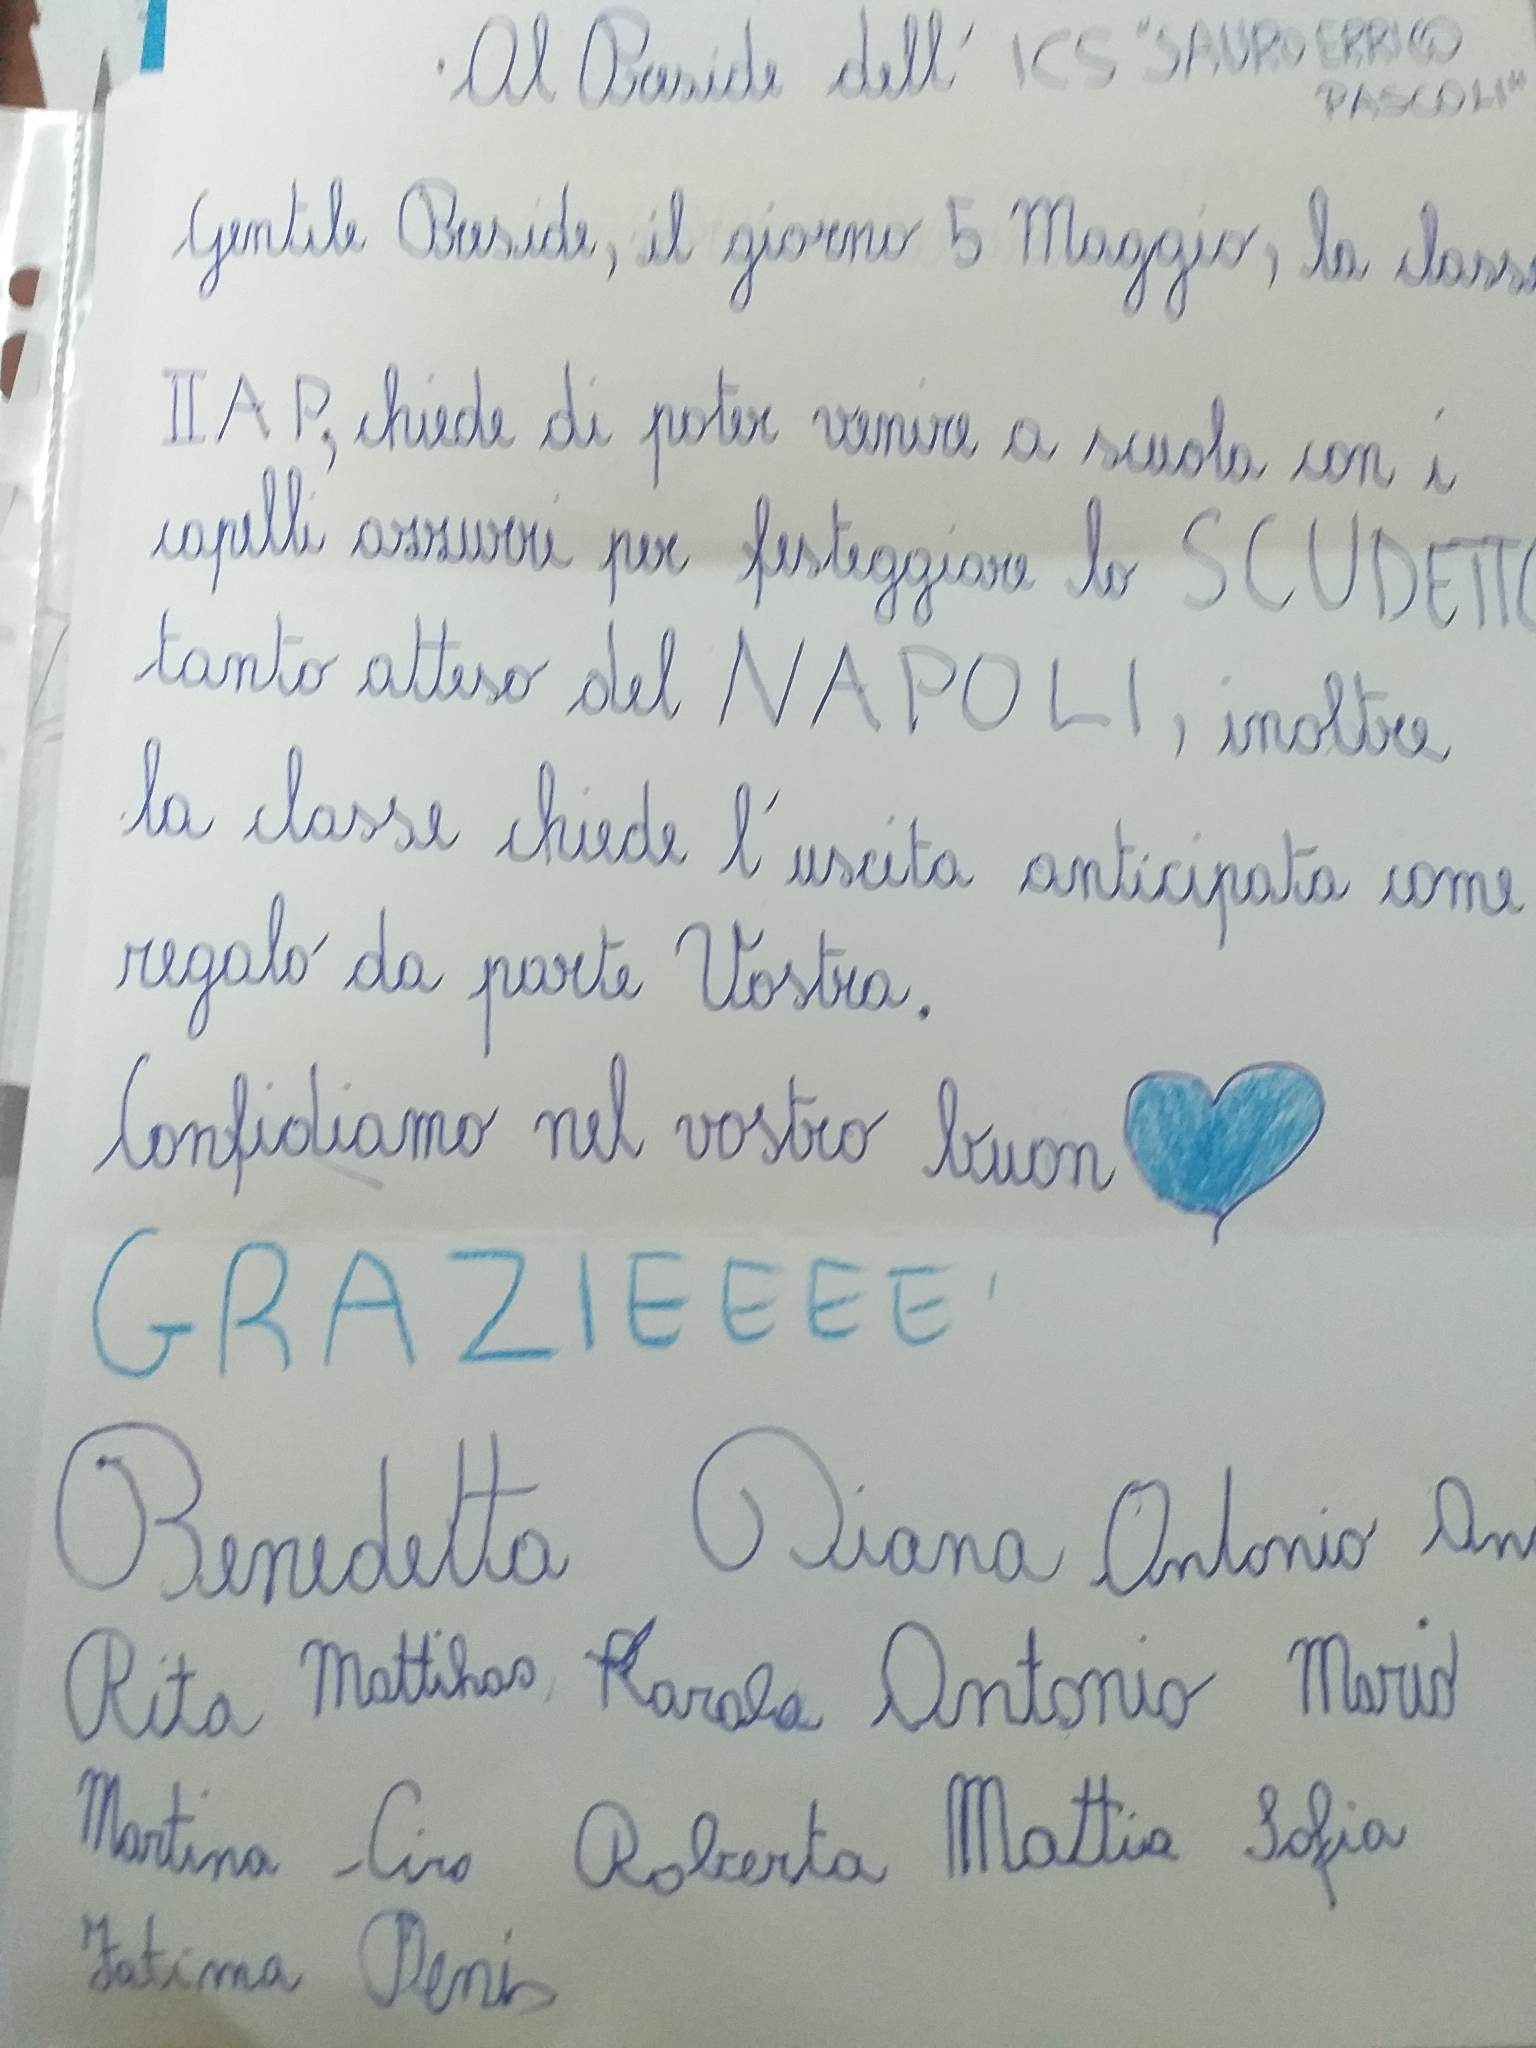 Al Preside dell' ICS "SAURO ERRICO
PASCOLI"
Gentile Preside, il giorno 5 Maggio, la classe
IIAP, chiede di poter venire a scuola con i
capelli azzurri per festeggiare lo SCUDETTO
tanto atteso del NAPOLI, inoltre
la classe chiede l'uscita anticipata come
regalo da parte Vostra.
Confidiamo nel vostro buon
GRAZIEEEE
Benedetta Diana Antonio
Rita Mattihas, Karola Antonio
Martina Ciro Roberta Mattia Sofia
Fatima Denis